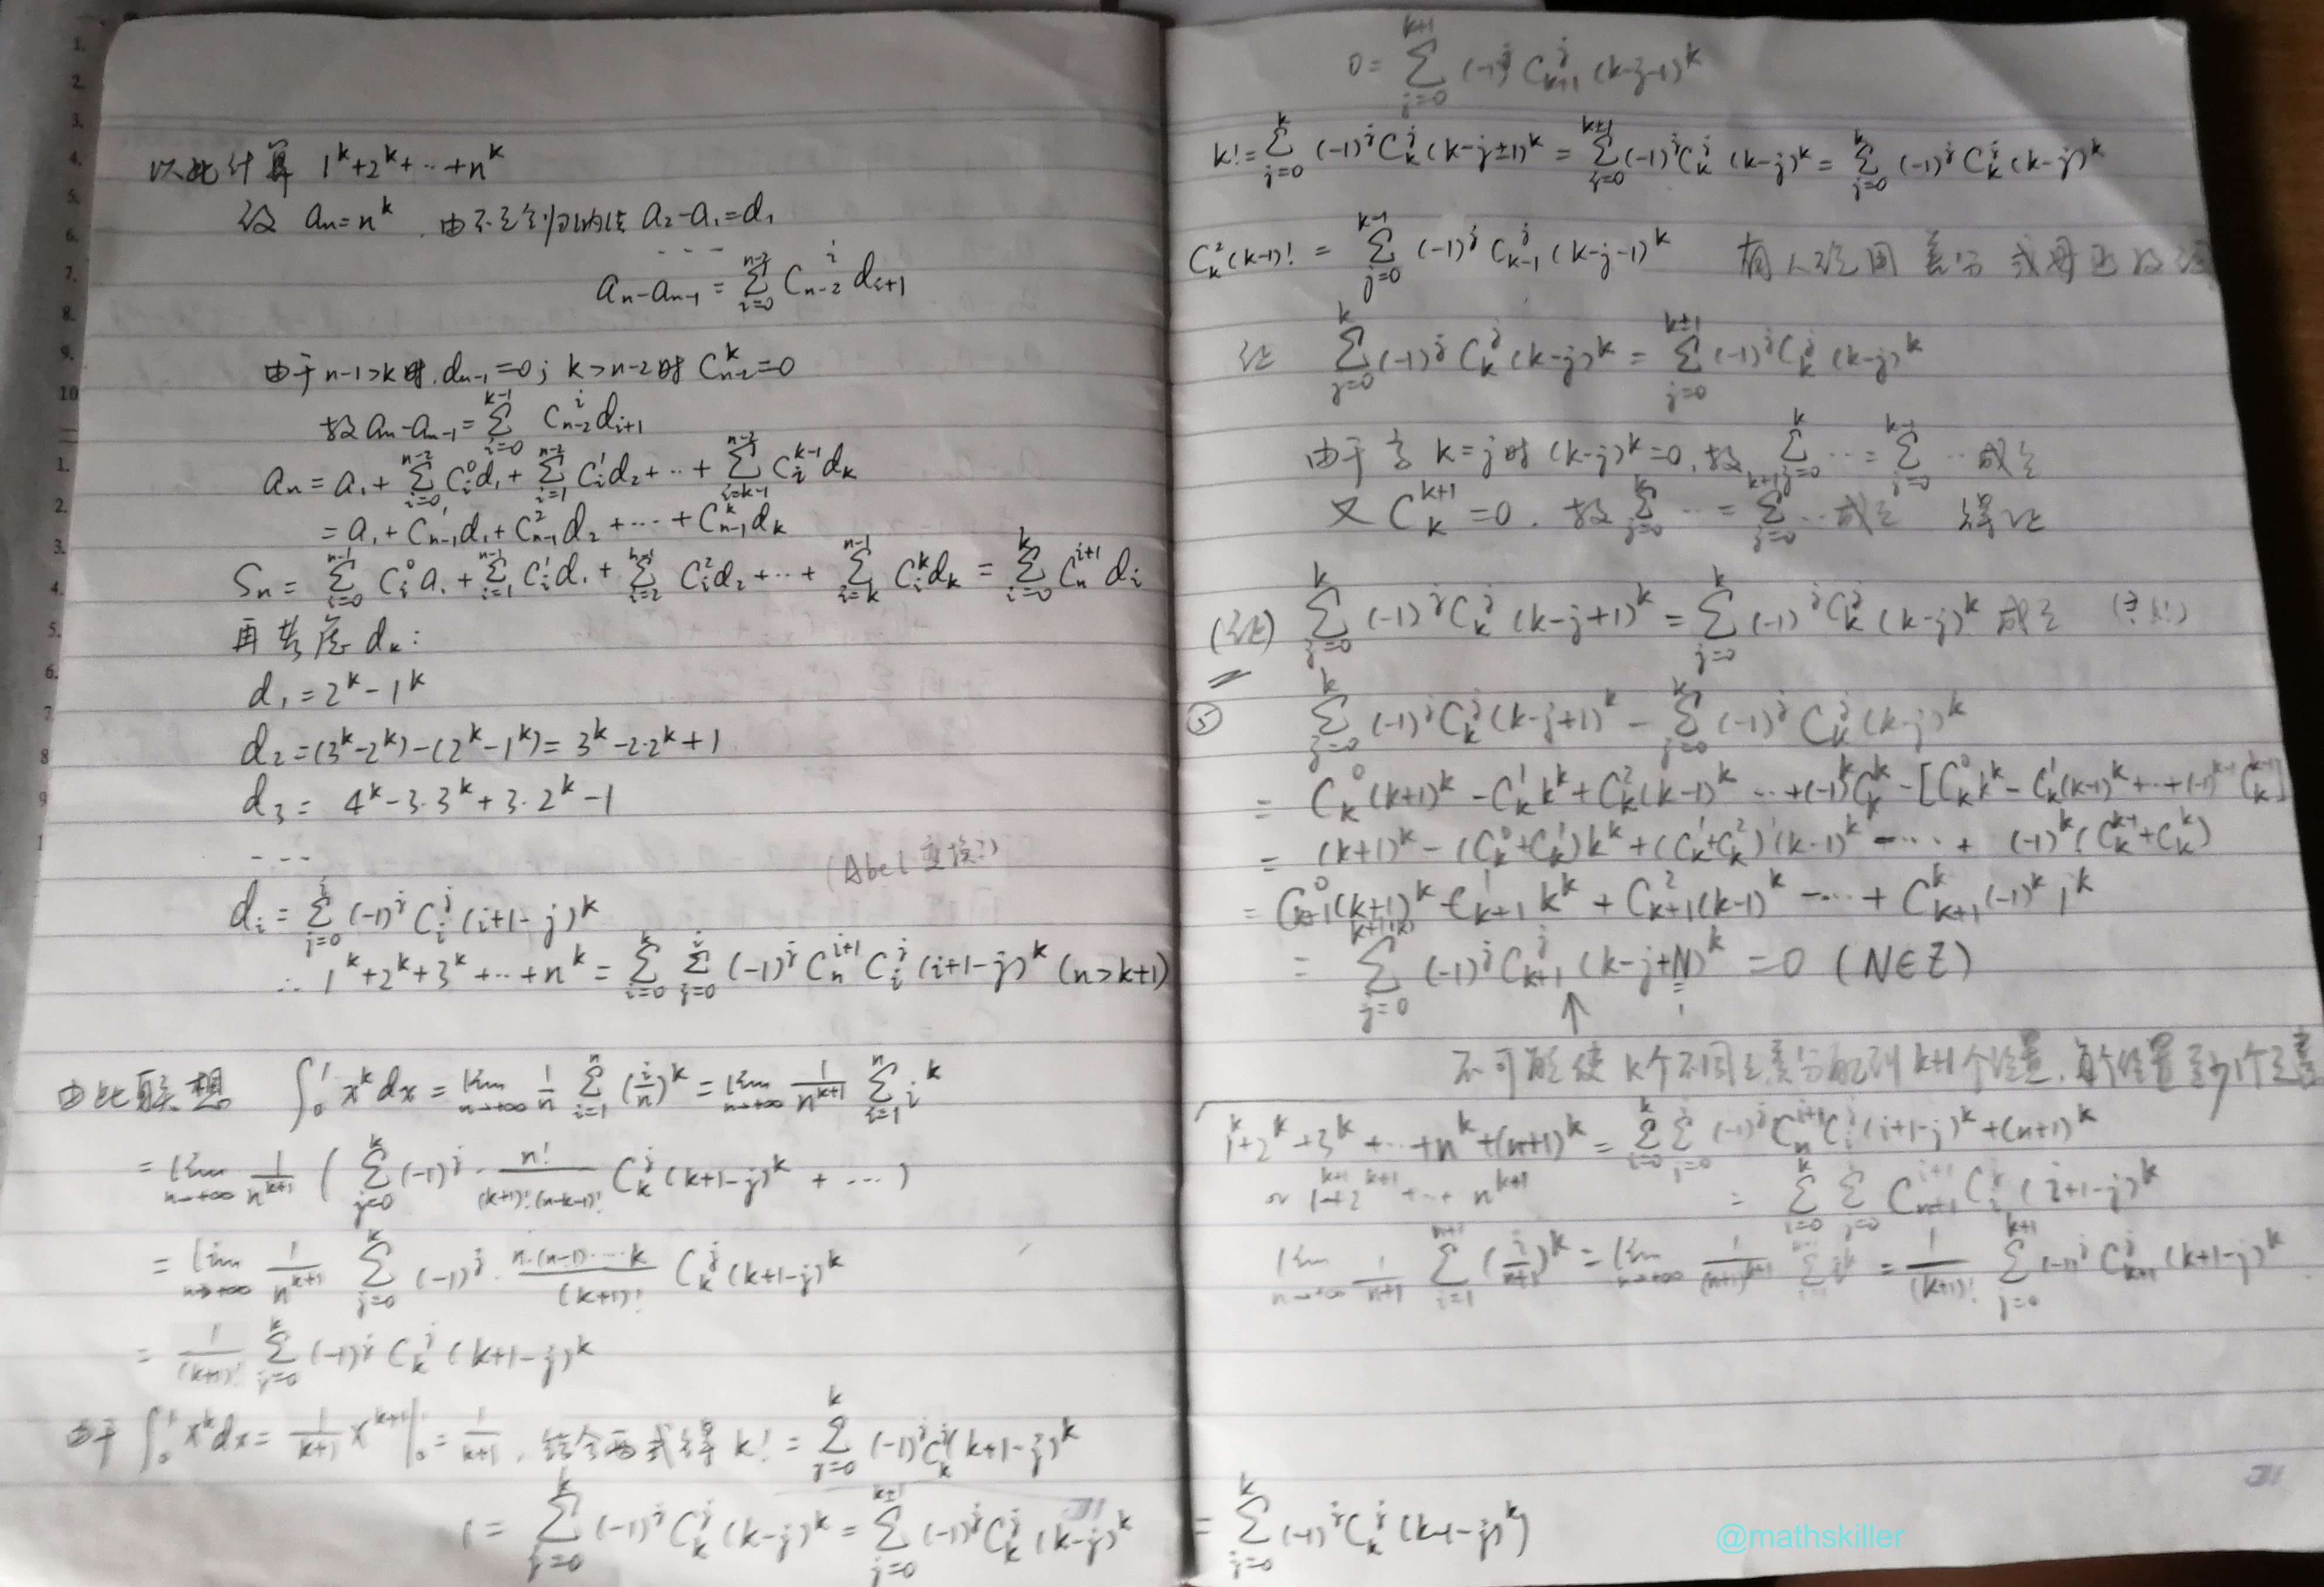 以此计算 1^k+2^k+…+n^k
设 a_n=n^k . 由不完全归纳法 a_2-a_1=d_1
…
a_n-a_{n-1} = ∑_{i=0}^{n-2} C_{n-2}^i d_{i+1}
由于 n-1>k时. d_{n-1}=0; k>n-2时 C_{n-2}^k=0
故 a_n-a_{n-1}=∑_{i=0}^{k-1} C_{n-2}^i d_{i+1}
a_n = a_1+∑_{i=0}^{n-2} C_i^0 d_1+∑_{i=1}^{n-2} C_i^1 d_2+…+∑_{i=k-1}^{n-2} C_i^{k-1} d_k
= a_1+C_{n-1}^1 d_1+C_{n-1}^2 d_2+…+C_{n-1}^k d_k
S_n = ∑_{i=0}^{n-1} C_i^0 a_1+∑_{i=1}^{n-1} C_i^1 d_1+∑_{i=2}^{n-1} C_i^2 d_2+…+∑_{i=k}^{n-1} C_i^k d_k = ∑_{i=0}^k C_n^{i+1} d_i
再考虑 d_k:
d_1=2^k-1^k
d_2=(3^k-2^k)-(2^k-1^k)=3^k-2·2^k+1
d_3= 4^k-3·3^k+3·2^k-1
…
(Abel 变换?)
d_i=∑_{j=0}^i (-1)^j C_i^j (i+1-j)^k
∴ 1^k+2^k+3^k+…+n^k = ∑_{i=0}^k ∑_{j=0}^i (-1)^j C_n^{i+1} C_i^j (i+1-j)^k (n>k+1)
由此联想 ∫_0^1 x^k dx = lim_{n→+∞} 1/n ∑_{i=1}^n (i/n)^k = lim_{n→+∞} 1/n^{k+1} ∑_{i=1}^n i^k
= lim_{n→+∞} 1/n^{k+1} ( ∑_{j=0}^k (-1)^j · n!/((k+1)!·(n-k-1)!) C_k^j (k+1-j)^k + … )
= lim_{n→+∞} 1/n^{k+1} ∑_{j=0}^k (-1)^j · n·(n-1)·…·k/(k+1)! C_k^j (k+1-j)^k
= 1/(k+1)! ∑_{j=0}^k (-1)^j C_k^j (k+1-j)^k
由于 ∫_0^1 x^k dx = 1/(k+1) x^{k+1}|_0^1 = 1/(k+1) . 结合两式得 k! = ∑_{j=0}^k (-1)^j C_k^j (k+1-j)^k
1 = ∑_{j=0}^k (-1)^j C_k^j (k-j)^k = ∑_{j=0}^{k±1} (-1)^j C_k^j (k-j)^k = ∑_{j=0}^k (-1)^j C_k^j (k-1-j)^k)
0 = ∑_{j=0}^{k+1} (-1)^j C_{k+1}^j (k-j-1)^k
k! = ∑_{j=0}^k (-1)^j C_k^j (k-j±1)^k = ∑_{j=0}^{k±1} (-1)^j C_k^j (k-j)^k = ∑_{j=0}^k (-1)^j C_k^j (k-j)^k
C_k^2 (k-1)! = ∑_{j=0}^{k-1} (-1)^j C_{k-1}^j (k-j-1)^k 有人说用差分或母函数证
证 ∑_{j=0}^k (-1)^j C_k^j (k-j)^k = ∑_{j=0}^{k±1} (-1)^j C_k^j (k-j)^k
由于当 k=j时 (k-j)^k=0. 故 ∑_{j=0}^k … = ∑_{j=0}^{k-1} … 成立
又 C_k^{k+1}=0 . 故 ∑_{j=0}^k … = ∑_{j=0}^{k+1} … 成立 得证
(证) ∑_{j=0}^k (-1)^j C_k^j (k-j+1)^k = ∑_{j=0}^k (-1)^j C_k^j (k-j)^k 成立 (是 k!)
∑_{j=0}^k (-1)^j C_k^j (k-j+1)^k - ∑_{j=0}^k (-1)^j C_k^j (k-j)^k
= C_k^0 (k+1)^k - C_k^1 k^k + C_k^2 (k-1)^k … +(-1)^k C_k^k - [C_k^0 k^k - C_k^1 (k-1)^k+…+(-1)^{k-1} C_k^{k-1}]
= (k+1)^k - (C_k^0+C_k^1)k^k + (C_k^1+C_k^2)(k-1)^k - … + (-1)^k (C_k^{k-1}+C_k^k)
= C_{k+1}^0 (k+1)^k - C_{k+1}^1 k^k + C_{k+1}^2 (k-1)^k - … + C_{k+1}^k (-1)^k 1^k
= ∑_{j=0}^{k+1(k)} (-1)^j C_{k+1}^j (k-j+N)^k = 0 (N∈Z)
↑
不可能使 k个不同元素分配到 k+1个位置. 每个位置至少1个元素
1^k+2^k+3^k+…+n^k+(n+1)^k = ∑_{i=0}^k ∑_{j=0}^i (-1)^j C_n^{i+1} C_i^j (i+1-j)^k + (n+1)^k
~ 1+2^{k+1}+…+n^{k+1} = ∑_{i=0}^k ∑_{j=0}^i C_{n+1}^{i+1} C_i^j (i+1-j)^k
lim_{n→+∞} 1/(n+1) ∑_{i=1}^{n+1} (i/(n+1))^k = lim_{n→+∞} 1/(n+1)^{k+1} ∑_{i=1}^{n+1} i^k = 1/(k+1)! ∑_{j=0}^{k+1} (-1)^j C_{k+1}^j (k+1-j)^k
@mathskiller